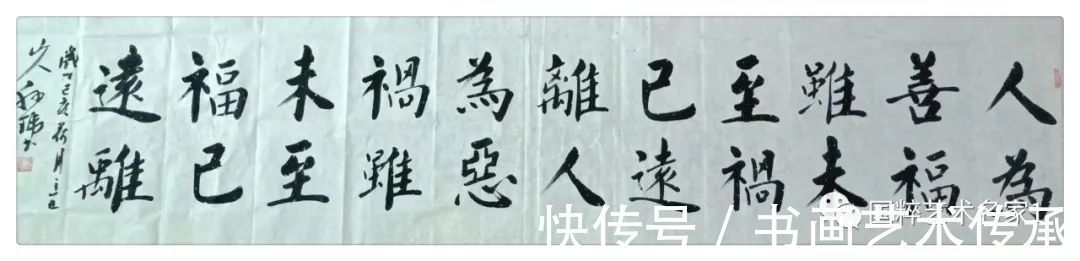 人為
善福
雖未
至禍
已遠
離人
為惡
禍雖
未至
福已
遠離
己亥荷月
国粹艺术名家
快传号 / 书画艺术传承